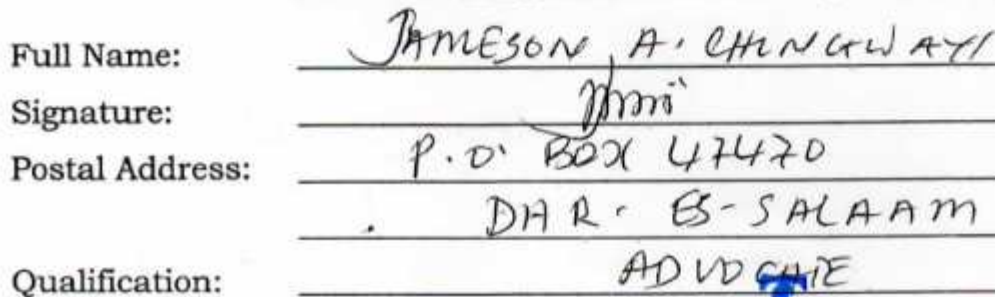 Full Name: JAMESON A. CHINGWAYI
Signature:
Postal Address: P.O. BOX 47470
DAR-ES-SALAAM
Qualification: ADVOCATE